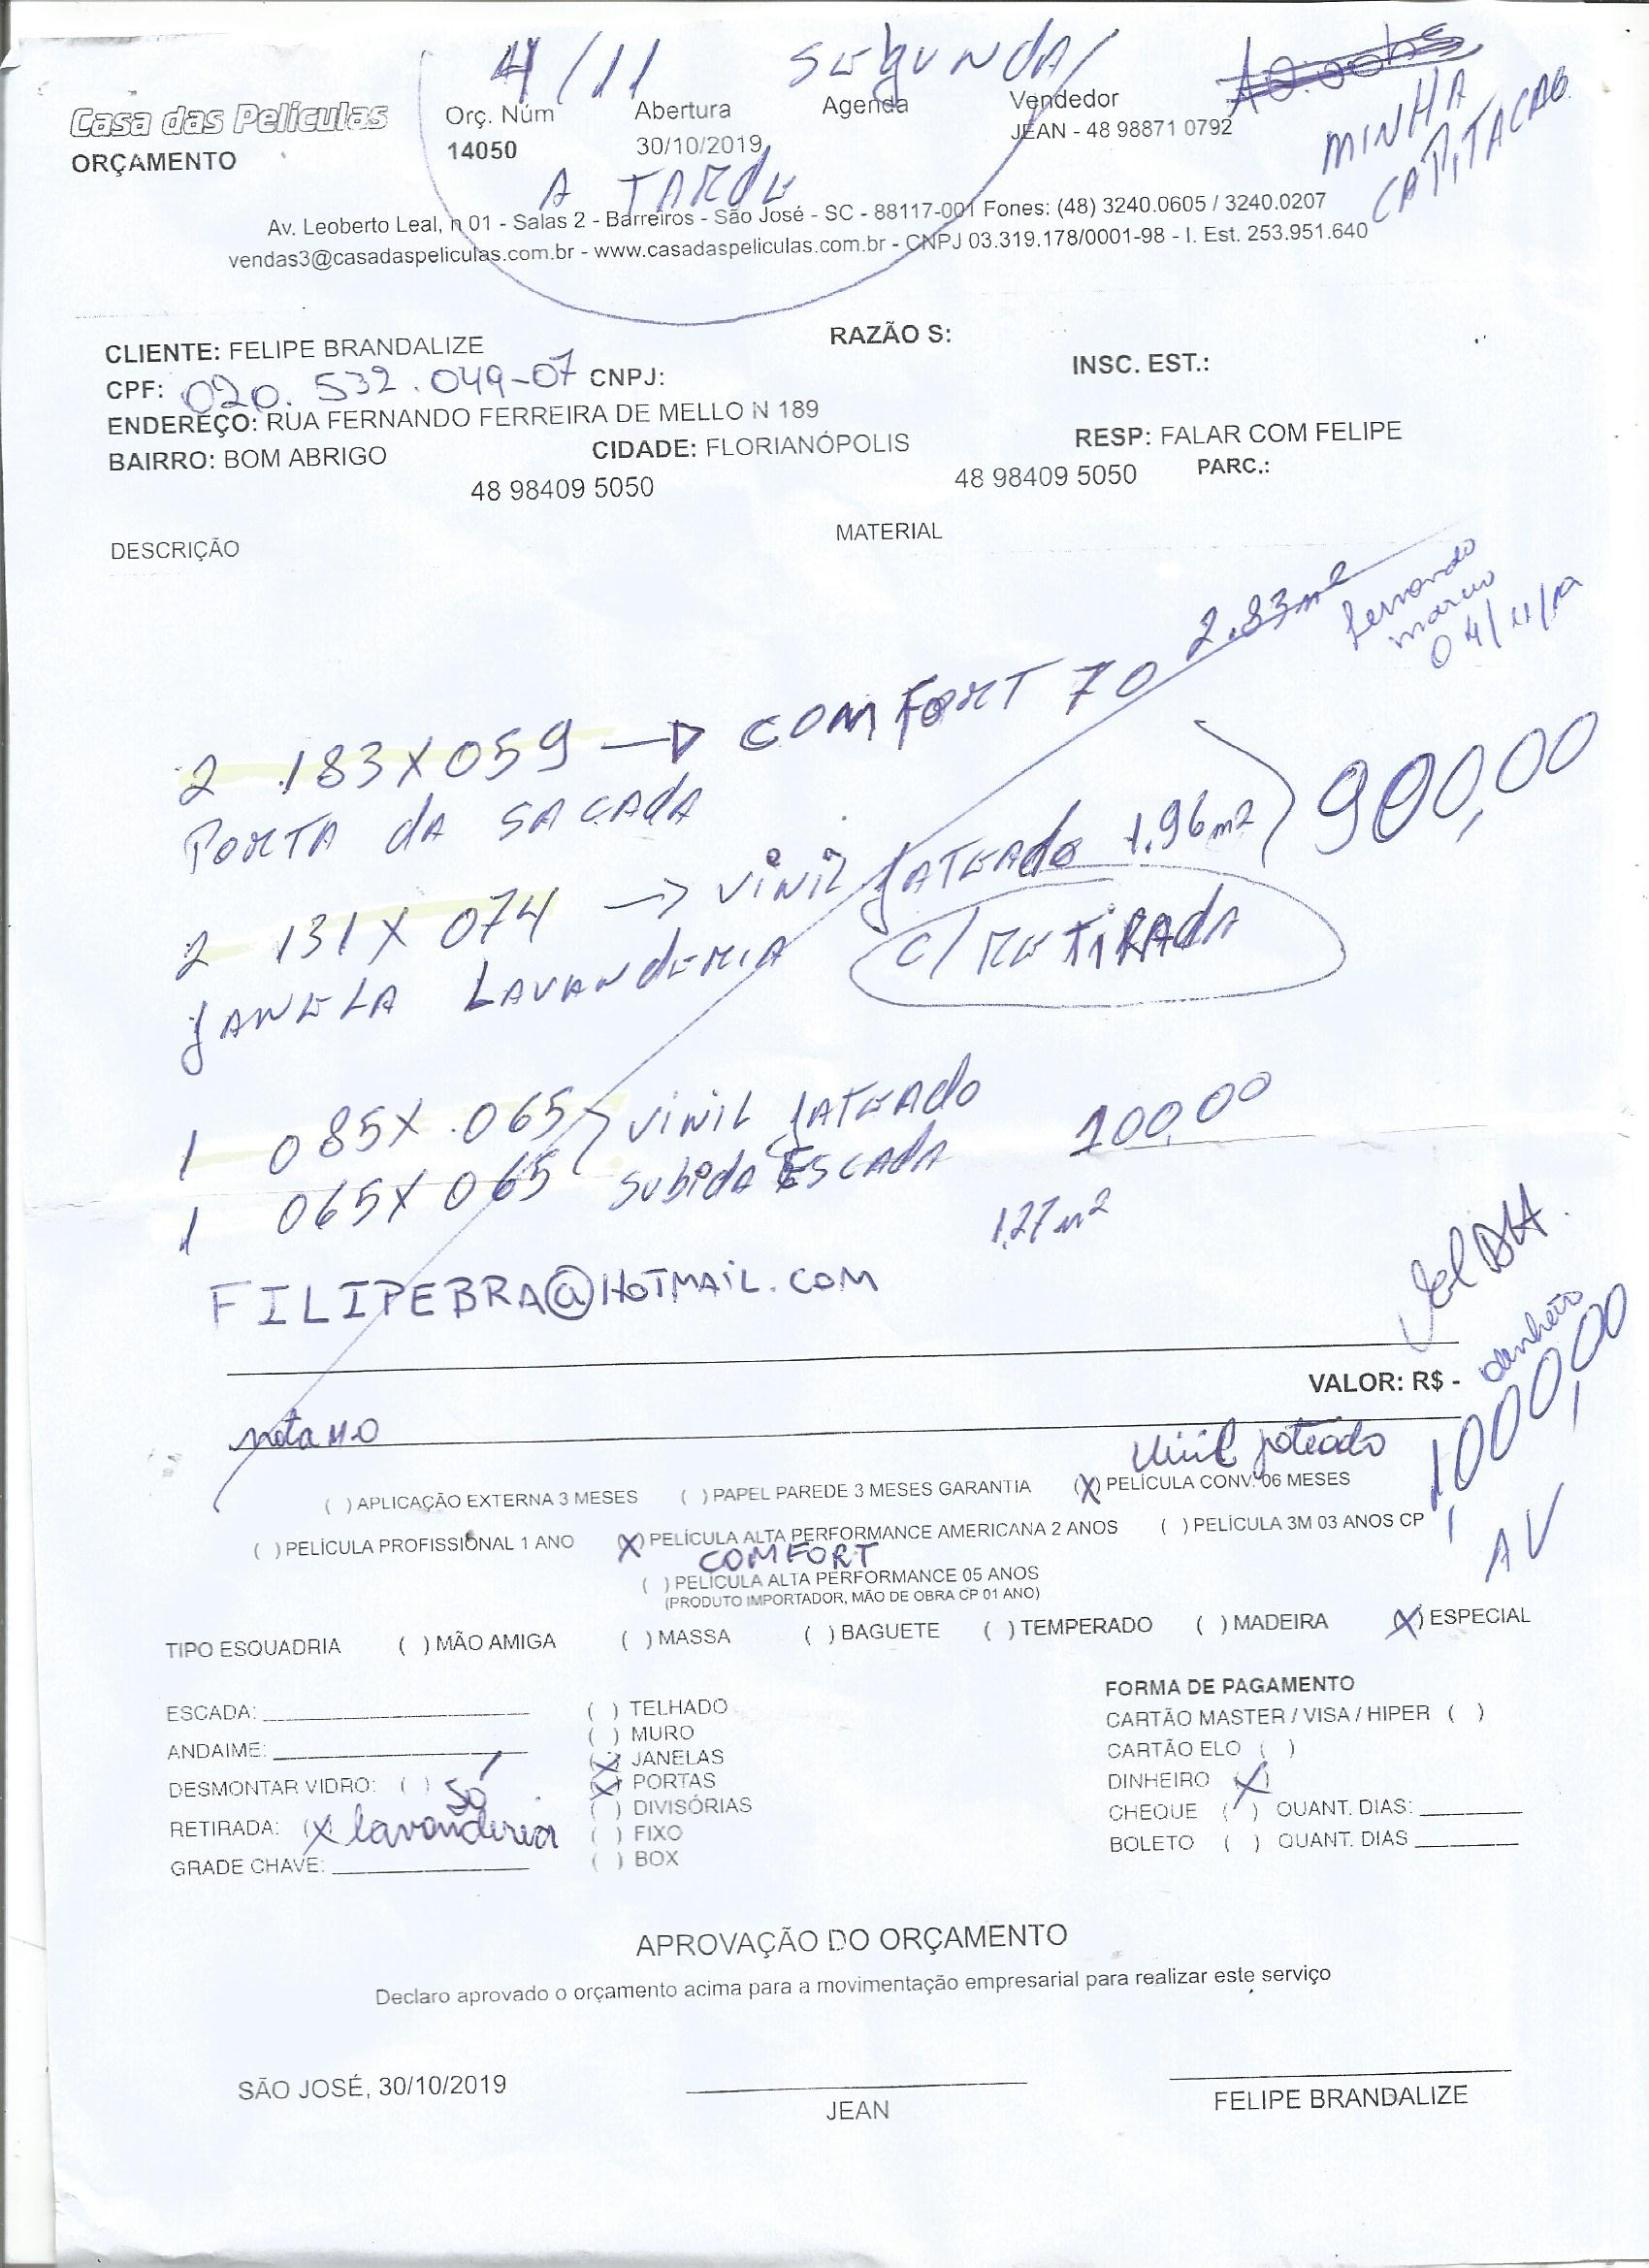 4/11 SEGUNDA
Casa das Películas
Orç. Núm Abertura Agenda Vendedor
14050 30/10/2019 JEAN - 48 98871 0792
ORÇAMENTO
MINHA
CAPITACAO
A TARDE
Av. Leoberto Leal, n 01 - Salas 2 - Barreiros - São José - SC - 88117-001 Fones: (48) 3240.0605 / 3240.0207
vendas3@casadaspeliculas.com.br - www.casadaspeliculas.com.br - CNPJ 03.319.178/0001-98 - I. Est. 253.951.640
CLIENTE: FELIPE BRANDALIZE RAZÃO S:
CPF: 020.532.049-07 CNPJ: INSC. EST.:
ENDEREÇO: RUA FERNANDO FERREIRA DE MELLO N 189
BAIRRO: BOM ABRIGO CIDADE: FLORIANÓPOLIS RESP: FALAR COM FELIPE
48 98409 5050 48 98409 5050 PARC.:
DESCRIÇÃO MATERIAL
Fernando
04/11/19
2 183X059 → COMFORT 70 2.83m2
PORTA DA SACADA
900,00
2 131X074 → VINIL JATEADO 1.96m2
JANELA LAVANDERIA C/ RETIRADA
1 085X.065 } VINIL JATEADO 100,00
1 065X065 SUBIDA ESCADA
1.27m2
FILIPEBRA@HOTMAIL.COM
VALOR: R$ - 1.000,00
AV
Vinil jateado
( ) APLICAÇÃO EXTERNA 3 MESES ( ) PAPEL PAREDE 3 MESES GARANTIA (X) PELÍCULA CONV. 06 MESES
( ) PELÍCULA PROFISSIONAL 1 ANO (X) PELÍCULA ALTA PERFORMANCE AMERICANA 2 ANOS ( ) PELÍCULA 3M 03 ANOS CP
COMFORT
( ) PELÍCULA ALTA PERFORMANCE 05 ANOS
(PRODUTO IMPORTADOR, MÃO DE OBRA CP 01 ANO)
TIPO ESQUADRIA ( ) MÃO AMIGA ( ) MASSA ( ) BAGUETE ( ) TEMPERADO ( ) MADEIRA (X) ESPECIAL
ESCADA:
ANDAIME:
DESMONTAR VIDRO: ( ) Só
RETIRADA: (X) lavanderia
GRADE CHAVE:
( ) TELHADO
( ) MURO
(X) JANELAS
(X) PORTAS
( ) DIVISÓRIAS
( ) FIXO
( ) BOX
FORMA DE PAGAMENTO
CARTÃO MASTER / VISA / HIPER ( )
CARTÃO ELO ( )
DINHEIRO (X)
CHEQUE ( ) QUANT. DIAS:
BOLETO ( ) QUANT. DIAS
APROVAÇÃO DO ORÇAMENTO
Declaro aprovado o orçamento acima para a movimentação empresarial para realizar este serviço
SÃO JOSÉ, 30/10/2019
JEAN
FELIPE BRANDALIZE